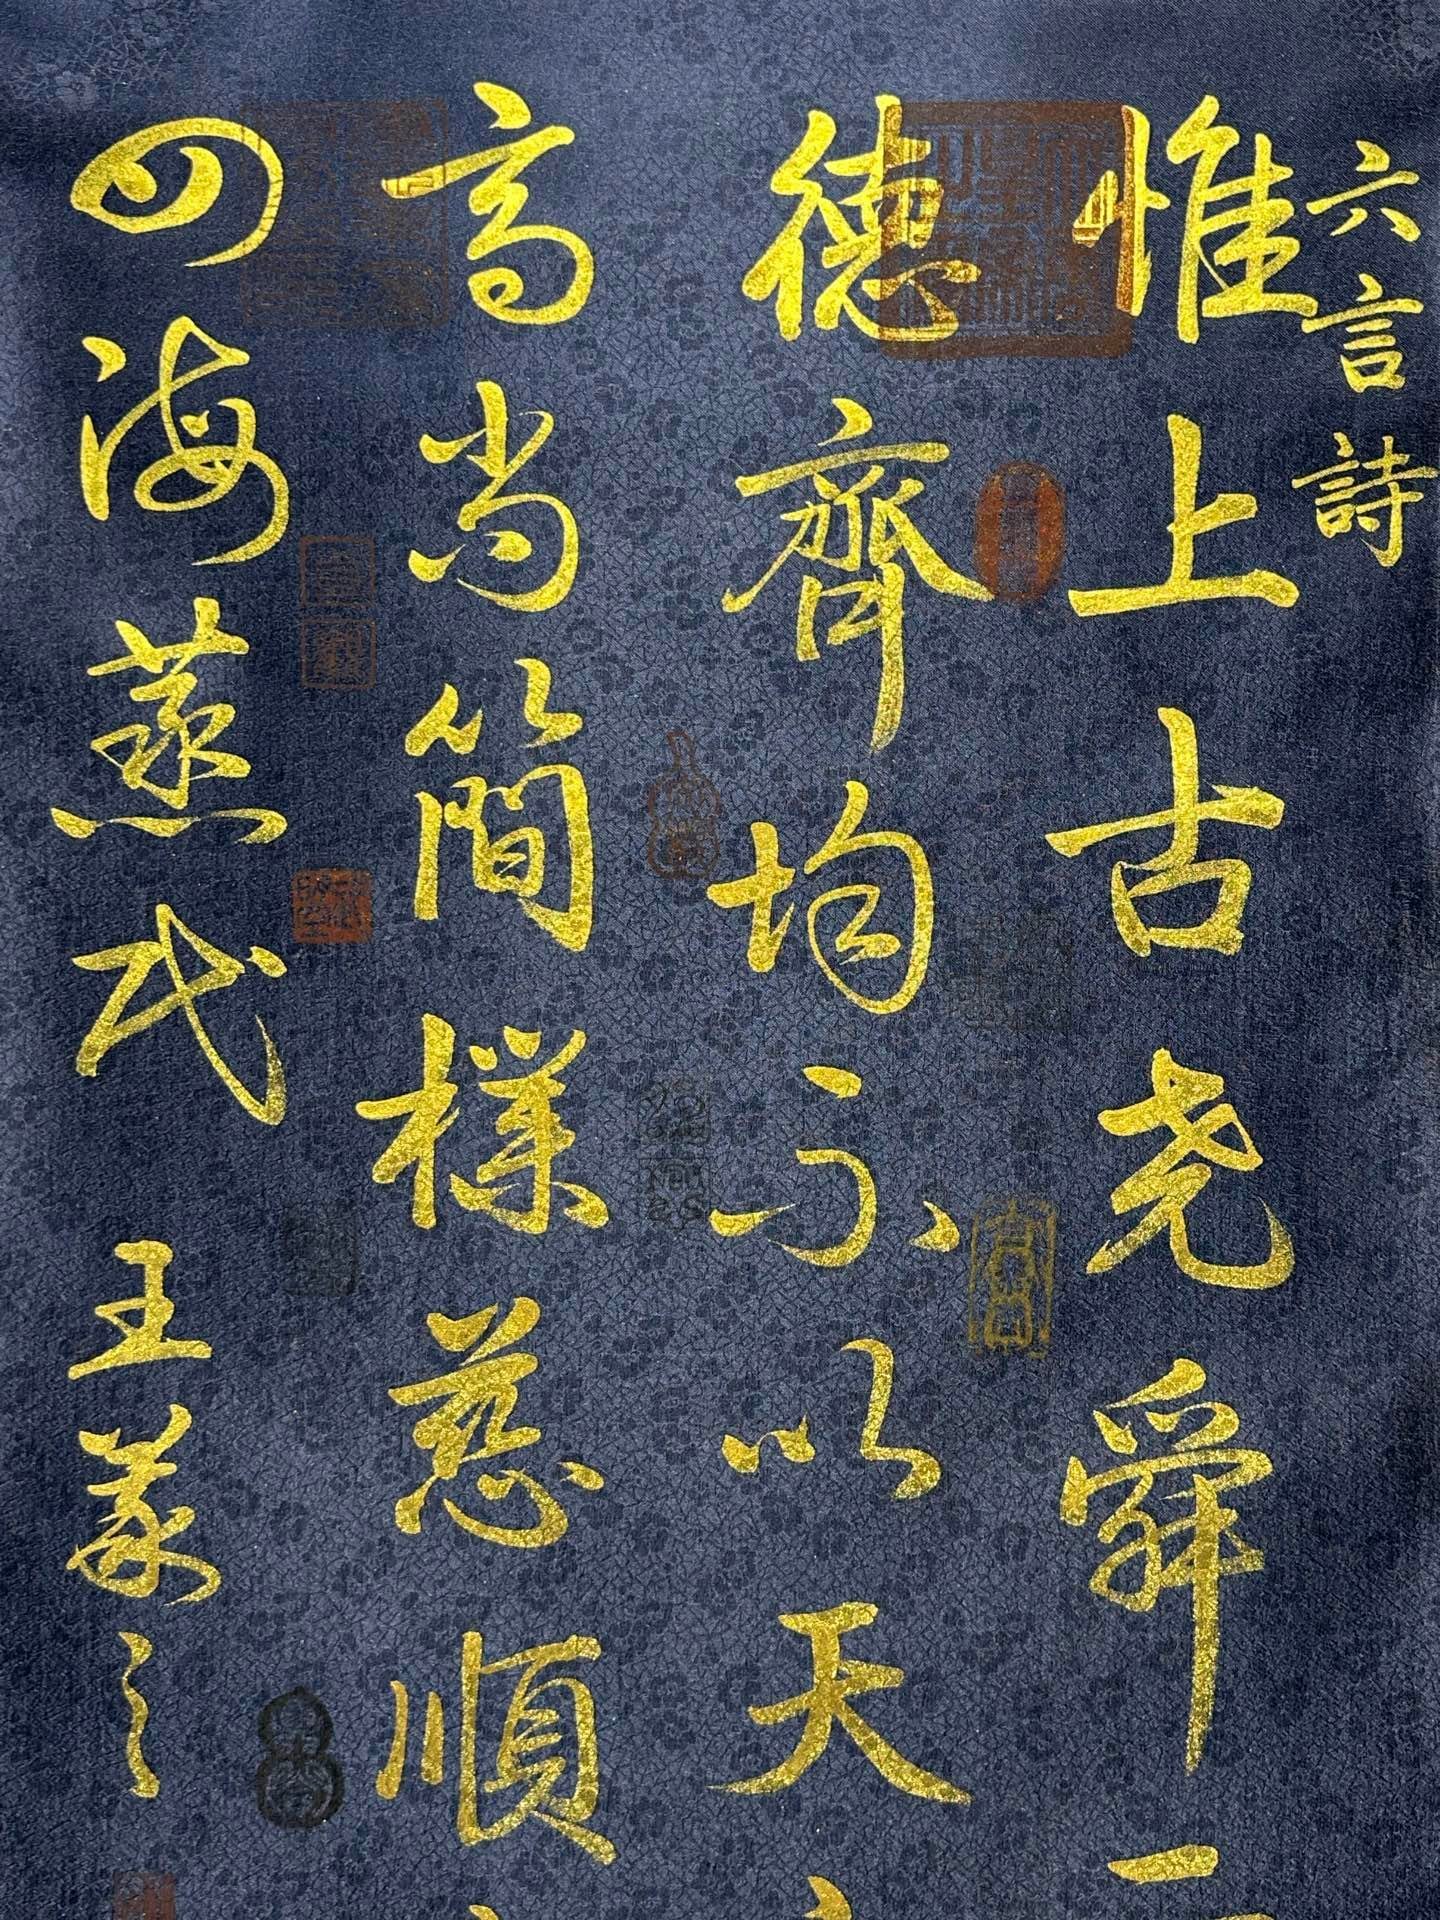 六言詩
惟上古尧舜二
德齊均不以天
高尚簡樸慈順
四海蒸民 王羲之